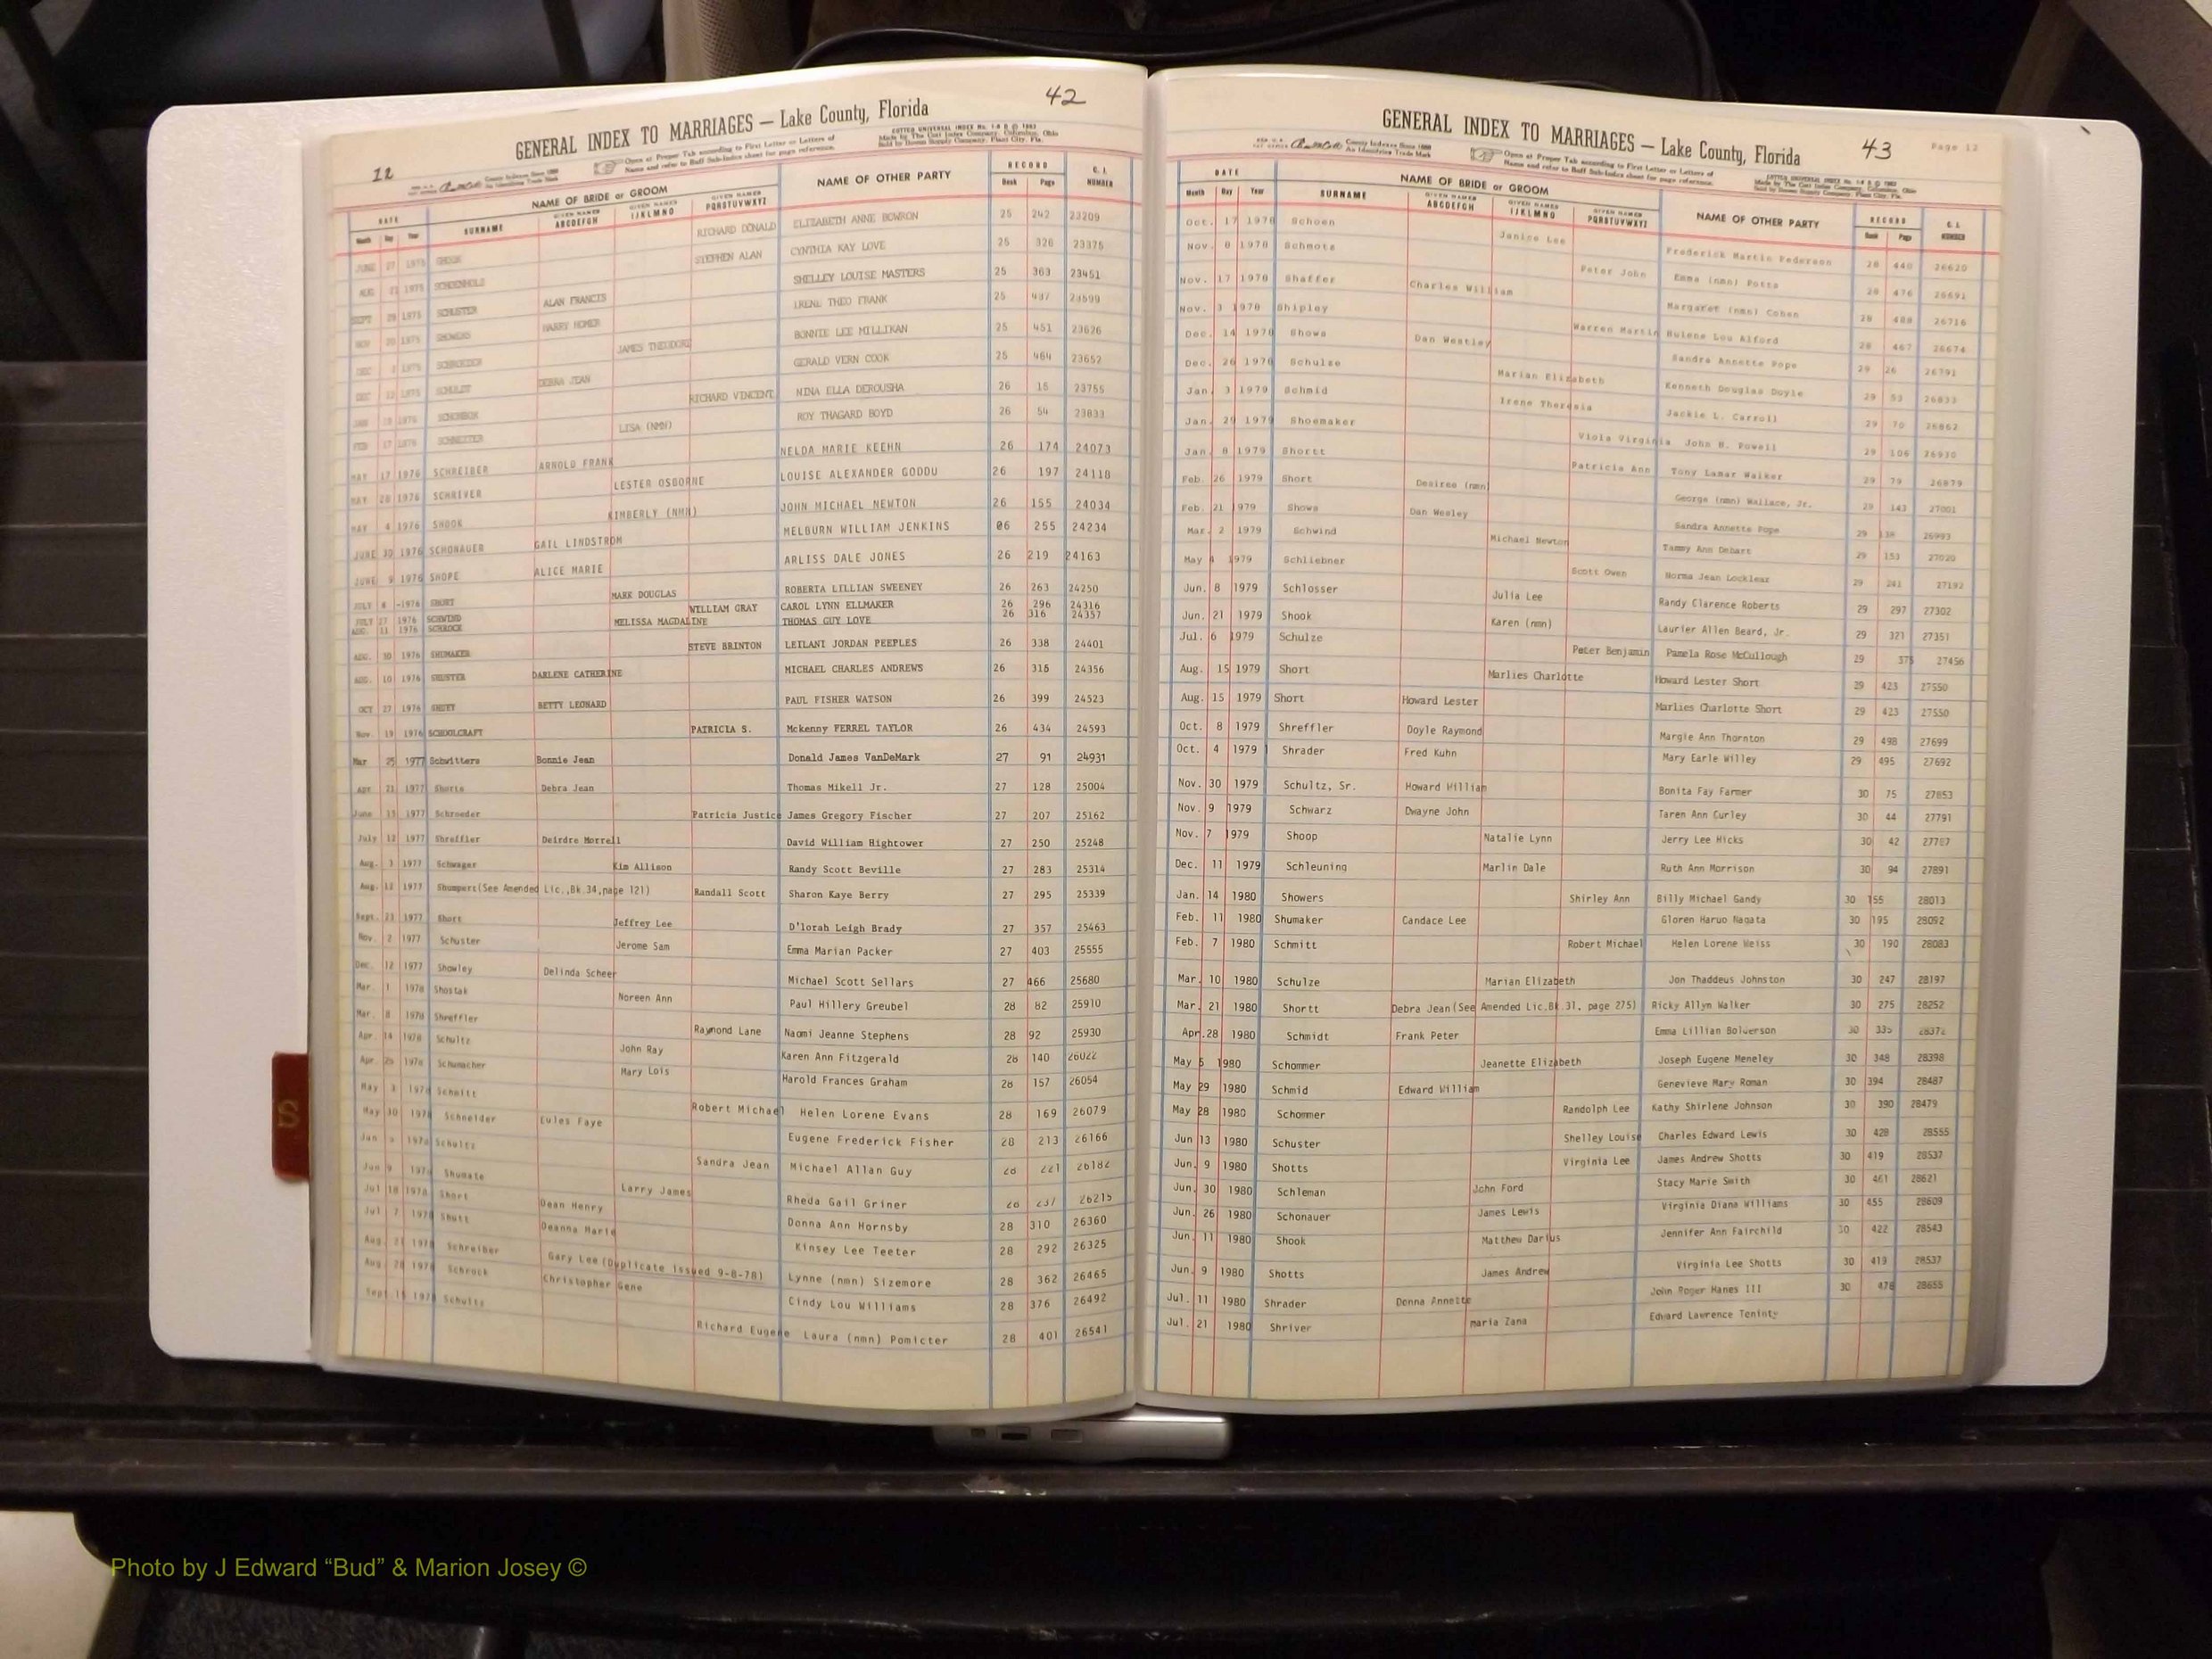 42
GENERAL INDEX TO MARRIAGES — Lake County, Florida
12
DATE NAME OF BRIDE or GROOM NAME OF OTHER PARTY RECORD C. I. NUMBER
Month Day Year SURNAME GIVEN NAMES ABCDEFGH GIVEN NAMES IJKLMNO GIVEN NAMES PQRSTUVWXYZ Book Page
JUNE 27 1975 RICHARD DONALD ELIZABETH ANNE BOWRON 25 242 23209
AUG 1975 SCHOENHOLZ STEPHEN ALAN CYNTHIA KAY LOVE 25 326 23375
SEPT 1975 SCHUSTER ALAN FRANCIS SHELLEY LOUISE MASTERS 25 363 23451
NOV 20 1975 SHOWERS HARRY HOMER IRENE THEO FRANK 25 437 23599
DEC 1975 SCHROEDER JAMES THEODORE BONNIE LEE MILLIKAN 25 451 23626
DEC 12 1975 SCHULDT DEBRA JEAN GERALD VERN COOK 25 464 23652
JAN 1976 RICHARD VINCENT NINA ELLA DEROUSHA 26 15 23755
FEB 17 1976 LISA (NMN) ROY THAGARD BOYD 26 54 23833
MAY 17 1976 SCHREIBER ARNOLD FRANK NELDA MARIE KEEHN 26 174 24073
MAY 28 1976 SCHRIVER LESTER OSBORNE LOUISE ALEXANDER GODDU 26 197 24118
MAY 4 1976 SHOOK KIMBERLY (NMN) JOHN MICHAEL NEWTON 26 155 24034
JUNE 30 1976 SCHONAUER GAIL LINDSTROM MELBURN WILLIAM JENKINS 06 255 24234
JUNE 9 1976 SHOPE ALICE MARIE ARLISS DALE JONES 26 219 24163
JULY 6 -1976 SHORT MARK DOUGLAS ROBERTA LILLIAN SWEENEY 26 263 24250
JULY 27 1976 SCHWIND WILLIAM GRAY CAROL LYNN ELLMAKER 26 296 24316
AUG. 11 1976 SCHROCK MELISSA MAGDALINE THOMAS GUY LOVE 26 316 24357
AUG. 30 1976 SHUMAKER STEVE BRINTON LEILANI JORDAN PEEPLES 26 338 24401
AUG. 10 1976 SHUSTER DARLENE CATHERINE MICHAEL CHARLES ANDREWS 26 315 24356
OCT 27 1976 SHUTT BETTY LEONARD PAUL FISHER WATSON 26 399 24523
Nov. 19 1976 SCHOOLCRAFT PATRICIA S. Mckenny FERREL TAYLOR 26 434 24593
Mar 25 1977 Schwitters Bonnie Jean Donald James VanDeMark 27 91 24931
Apr. 21 1977 Shorts Debra Jean Thomas Mikell Jr. 27 128 25004
June 13 1977 Schroeder Patricia Justice James Gregory Fischer 27 207 25162
July 12 1977 Shreffler Deirdre Morrell David William Hightower 27 250 25248
Aug. 3 1977 Schwager Kim Allison Randy Scott Beville 27 283 25314
Aug. 12 1977 Shumpert(See Amended Lic.,Bk.34,page 121) Randall Scott Sharon Kaye Berry 27 295 25339
Sept. 21 1977 Short Jeffrey Lee D'lorah Leigh Brady 27 357 25463
Nov. 2 1977 Schuster Jerome Sam Emma Marian Packer 27 403 25555
Dec. 12 1977 Showley Delinda Scheer Michael Scott Sellars 27 466 25680
Mar. 1 1978 Shostak Noreen Ann Paul Hillery Greubel 28 82 25910
Mar. 8 1978 Shreffler Raymond Lane Naomi Jeanne Stephens 28 92 25930
Apr. 14 1978 Schultz John Ray Karen Ann Fitzgerald 28 140 26022
Apr. 25 1978 Schumacher Mary Lois Harold Frances Graham 28 157 26054
May 3 1978 Schmitt Robert Michael Helen Lorene Evans 28 169 26079
May 30 1978 Schneider Eules Faye Eugene Frederick Fisher 28 213 26166
Jun 5 1978 Schultz Sandra Jean Michael Allan Guy 28 221 26182
Jun 9 1978 Shumate Larry James Rheda Gail Griner 28 237 26215
Jul 18 1978 Short Dean Henry Donna Ann Hornsby 28 310 26360
Jul 7 1978 Shutt Deanna Marie Kinsey Lee Teeter 28 292 26325
Aug 21 1978 Schreiber Gary Lee (Duplicate issued 9-8-78) Lynne (nmn) Sizemore 28 362 26465
Aug 28 1978 Schrock Christopher Gene Cindy Lou Williams 28 376 26492
Sept 15 1978 Schultz Richard Eugene Laura (nmn) Pomicter 28 401 26541
S
43 Page 12
GENERAL INDEX TO MARRIAGES — Lake County, Florida
DATE NAME OF BRIDE or GROOM NAME OF OTHER PARTY RECORD C. I. NUMBER
Month Day Year SURNAME GIVEN NAMES ABCDEFGH GIVEN NAMES IJKLMNO GIVEN NAMES PQRSTUVWXYZ Book Page
Oct. 17 1978 Schoen Janice Lee Frederick Martin Pederson 28 440 26620
Nov. 8 1978 Schmotz Peter John Emma (nmn) Potts 28 476 26691
Nov. 17 1978 Shaffer Charles William Margaret (nmn) Cohen 28 488 26716
Nov. 3 1978 Shipley Warren Martin Hulene Lou Alford 28 467 26674
Dec. 14 1978 Shows Dan Westley Sandra Annette Pope 29 26 26791
Dec. 26 1978 Schulze Marian Elizabeth Kenneth Douglas Doyle 29 53 26833
Jan. 3 1979 Schmid Irene Theresia Jackie L. Carroll 29 70 26862
Jan. 29 1979 Shoemaker Viola Virginia John B. Powell 29 106 26930
Jan. 8 1979 Shortt Patricia Ann Tony Lamar Walker 29 79 26879
Feb. 26 1979 Short Desiree (nmn) George (nmn) Wallace, Jr. 29 143 27001
Feb. 21 1979 Shows Dan Wesley Sandra Annette Pope 29 26993
Mar. 2 1979 Schwind Michael Newton Tammy Ann Debart 29 153 27020
May 4 1979 Schliebner Scott Owen Norma Jean Locklear 29 241 27192
Jun. 8 1979 Schlosser Julia Lee Randy Clarence Roberts 29 297 27302
Jun. 21 1979 Shook Karen (nmn) Laurier Allen Beard, Jr. 29 321 27351
Jul. 6 1979 Schulze Peter Benjamin Pamela Rose McCullough 29 375 27456
Aug. 15 1979 Short Marlies Charlotte Howard Lester Short 29 423 27550
Aug. 15 1979 Short Howard Lester Marlies Charlotte Short 29 423 27550
Oct. 8 1979 Shreffler Doyle Raymond Margie Ann Thornton 29 498 27699
Oct. 4 1979 Shrader Fred Kuhn Mary Earle Willey 29 495 27692
Nov. 30 1979 Schultz, Sr. Howard William Bonita Fay Farmer 30 75 27853
Nov. 9 1979 Schwarz Dwayne John Taren Ann Curley 30 44 27791
Nov. 7 1979 Shoop Natalie Lynn Jerry Lee Hicks 30 42 27787
Dec. 11 1979 Schleuning Marlin Dale Ruth Ann Morrison 30 94 27891
Jan. 14 1980 Showers Shirley Ann Billy Michael Gandy 30 155 28013
Feb. 11 1980 Shumaker Candace Lee Gloren Haruo Nagata 30 195 28092
Feb. 7 1980 Schmitt Robert Michael Helen Lorene Weiss 30 190 28083
Mar. 10 1980 Schulze Marian Elizabeth Jon Thaddeus Johnston 30 247 28197
Mar. 21 1980 Shortt Debra Jean(See Amended Lic.Bk.31, page 275) Ricky Allyn Walker 30 275 28252
Apr.28 1980 Schmidt Frank Peter Emma Lillian Bolverson 30 335 28372
May 5 1980 Schommer Jeanette Elizabeth Joseph Eugene Meneley 30 348 28398
May 29 1980 Schmid Edward William Genevieve Mary Roman 30 394 28487
May 28 1980 Schommer Randolph Lee Kathy Shirlene Johnson 30 390 28479
Jun 13 1980 Schuster Shelley Louise Charles Edward Lewis 30 428 28555
Jun. 9 1980 Shotts Virginia Lee James Andrew Shotts 30 419 28537
Jun. 30 1980 Schleman John Ford Stacy Marie Smith 30 461 28621
Jun. 26 1980 Schonauer James Lewis Virginia Diana Williams 30 455 28609
Jun. 11 1980 Shook Matthew Darius Jennifer Ann Fairchild 30 422 28543
Jun. 9 1980 Shotts James Andrew Virginia Lee Shotts 30 419 28537
Jul. 11 1980 Shrader Donna Annette John Roger Hanes III 30 478 28655
Jul. 21 1980 Shriver maria Zana Edward Lawrence Teninty
Photo by J Edward “Bud” & Marion Josey ©